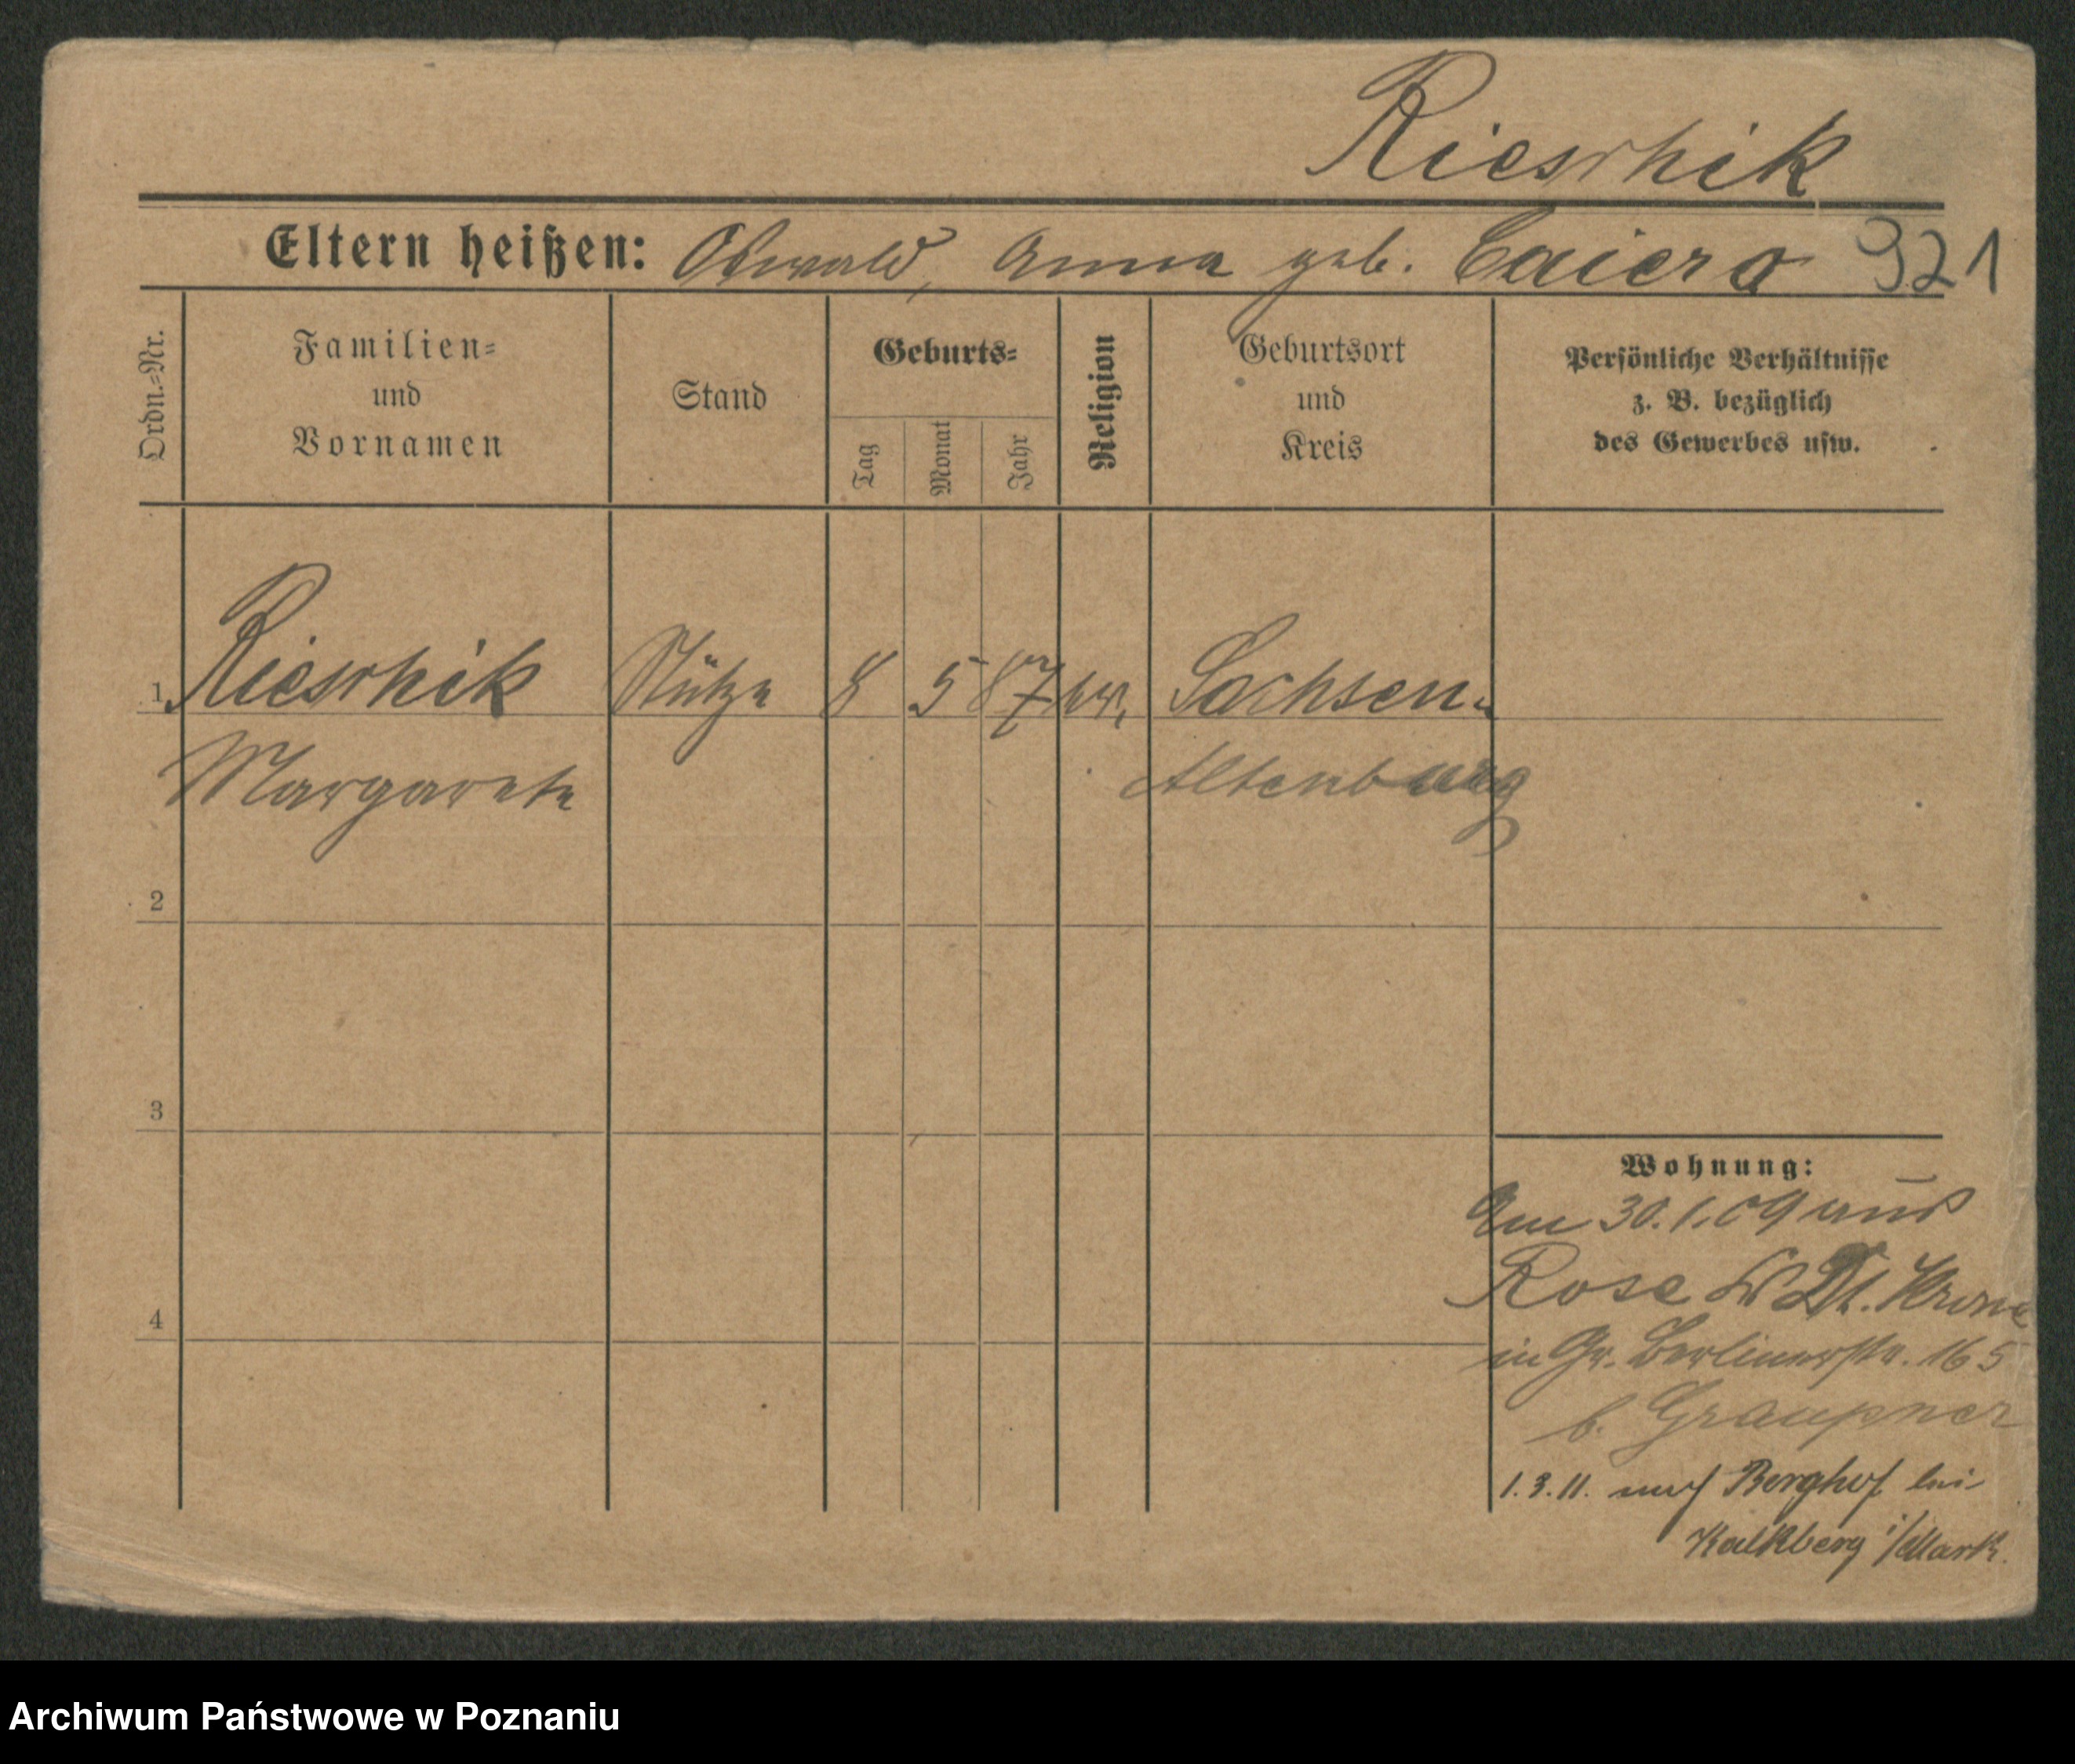 Rieschik
Eltern heißen: Oswald, Anna geb. Caiero 321
Ordn.=Nr.
Familien= und Vornamen
Stand
Geburts=
Tag
Monat
Jahr
Religion
Geburtsort und Kreis
Persönliche Verhältnisse z. B. bezüglich des Gewerbes usw.
1 Rieschik Stütze 8 5 87 ev. Sachsen-
Margarete Altenburg
2
3
4
Wohnung:
Am 30.1.09 aus
Rose Dt. Krone
in Gr. Berlinerstr. 165
b. Graupner
1.3.11. nach Berghof bei
Kalkberg i/Mark.
Archiwum Państwowe w Poznaniu